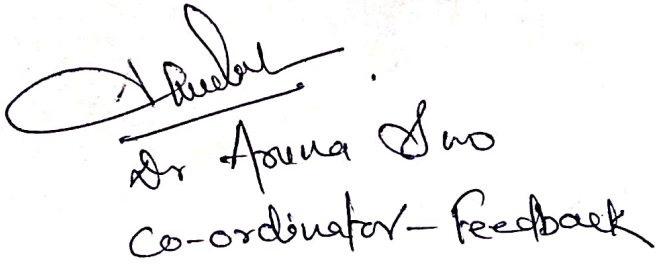 Dr Aruna
Co-ordinator - Feedback